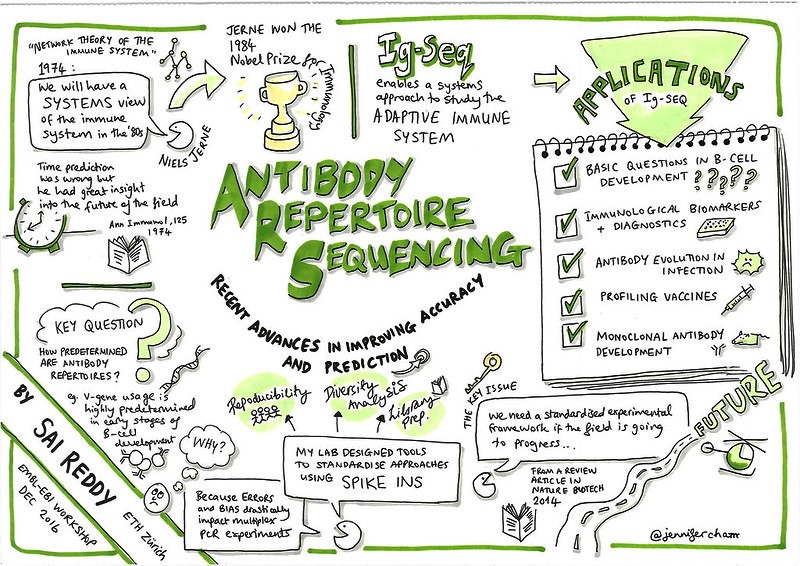 "NETWORK THEORY OF THE
IMMUNE SYSTEM"
1974:
We will have a
SYSTEMS view
of the immune
system in the '80s
NIELS JERNE
Time prediction
was wrong but
he had great insight
into the future of the field
Ann Immunol, 125
1974
JERNE WON THE
1984
Nobel Prize for
Immunology
Ig-Seq
enables a systems
approach to study the
ADAPTIVE IMMUNE
SYSTEM
APPLICATIONS
OF Ig-SEQ
BASIC QUESTIONS IN B-CELL
DEVELOPMENT ?????
IMMUNOLOGICAL BIOMARKERS
+ DIAGNOSTICS
ANTIBODY EVOLUTION IN
INFECTION
PROFILING VACCINES
MONOCLONAL ANTIBODY
DEVELOPMENT
ANTIBODY
REPERTOIRE
SEQUENCING
RECENT ADVANCES IN IMPROVING ACCURACY
AND PREDICTION
KEY QUESTION
?
HOW PREDETERMINED
ARE ANTIBODY
REPERTOIRES?
eg. V-gene usage is
highly predetermined
in early stages of
B-cell
development
WHY?
BY SAI REDDY
ETH Zürich
EMBL-EBI WORKSHOP
DEC 2016
Because ERRORS
and BIAS drastically
impact multiplex
PCR experiments
Reproducibility
Diversity
Analysis
Library
Prep.
MY LAB DESIGNED TOOLS
TO STANDARDISE APPROACHES
USING SPIKE INS
THE KEY ISSUE
We need a standardized experimental
framework if the field is going
to progress...
FROM A REVIEW
ARTICLE IN
NATURE BIOTECH
2014
FUTURE
@jennifercham